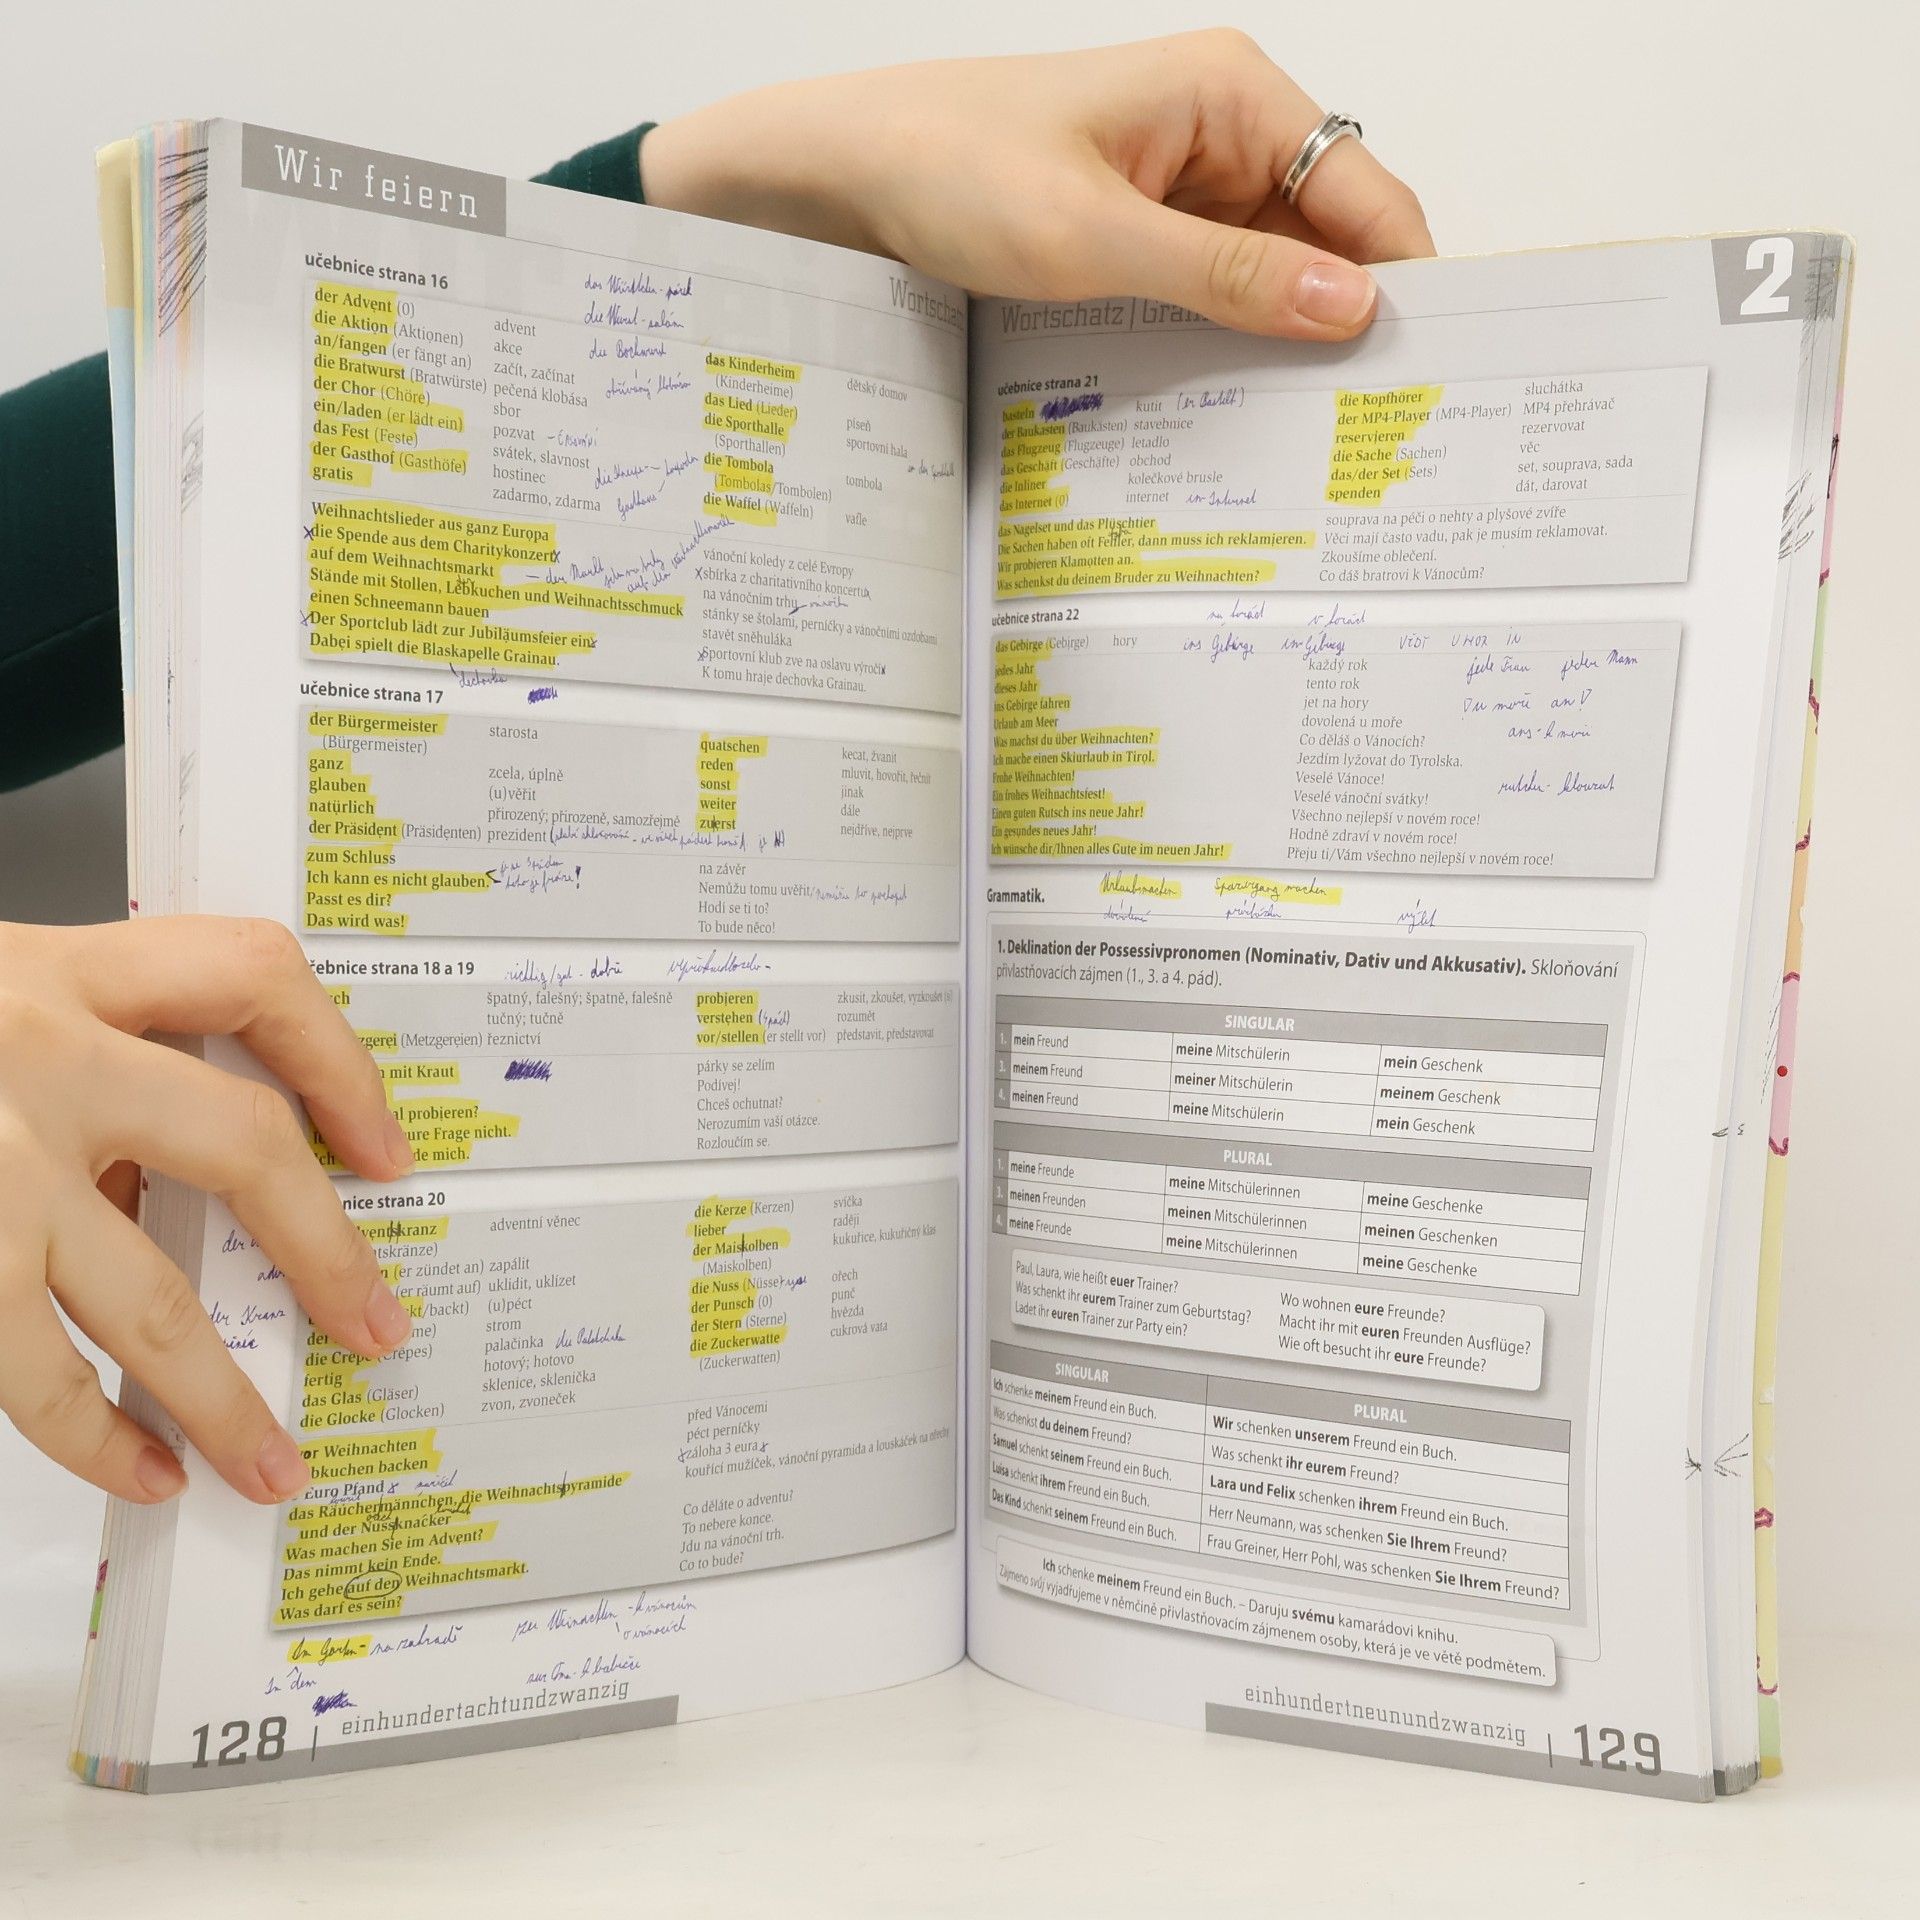 Wir feiern
Wortschatz
učebnice strana 16
der Advent (0) advent
die Aktion (Aktionen) akce
an/fangen (er fängt an) začít, začínat
die Bratwurst (Bratwürste) pečená klobása
der Chor (Chöre) sbor
ein/laden (er lädt ein) pozvat
das Fest (Feste) svátek, slavnost
der Gasthof (Gasthöfe) hostinec
gratis zadarmo, zdarma
das Kinderheim dětský domov
(Kinderheime)
das Lied (Lieder) píseň
die Sporthalle sportovní hala
(Sporthallen)
die Tombola tombola
(Tombolas/Tombolen)
die Waffel (Waffeln) vafle
die Wurst - salám
die Bockwurst
Weihnachtslieder aus ganz Europa vánoční koledy z celé Evropy
die Spende aus dem Charitykonzert sbírka z charitativního koncertu
auf dem Weihnachtsmarkt na vánočním trhu
Stände mit Stollen, Lebkuchen und Weihnachtsschmuck stánky se štolami, perníčky a vánočními ozdobami
einen Schneemann bauen stavět sněhuláka
Der Sportclub lädt zur Jubiläumsfeier ein. Sportovní klub zve na oslavu výročí.
Dabei spielt die Blaskapelle Grainau. K tomu hraje dechovka Grainau.
dechovka
učebnice strana 17
der Bürgermeister starosta
(Bürgermeister)
ganz zcela, úplně
glauben (u)věřit
natürlich přirozený; přirozeně, samozřejmě
der Präsident (Präsidenten) prezident
quatschen kecat, žvanit
reden mluvit, hovořit, řečnit
sonst jinak
weiter dále
zuerst nejdříve, nejprve
zum Schluss na závěr
Ich kann es nicht glauben. Nemůžu tomu uvěřit.
Passt es dir? Hodí se ti to?
Das wird was! To bude něco!
učebnice strana 18 a 19 richtig/gut - dobře
špatný, falešný; špatně, falešně
tučný; tučně
(Metzgereien) řeznictví
probieren zkusit, zkoušet, vyzkoušet (si)
verstehen (4 pád) rozumět
vor/stellen (er stellt vor) představit, představovat
mit Kraut párky se zelím
Podívej!
al probieren? Chceš ochutnat?
ure Frage nicht. Nerozumím vaší otázce.
de mich. Rozloučím se.
nice strana 20
ventskranz adventní věnec
tskränze)
(er zündet an) zapálit
(er räumt auf) uklidit, uklízet
kt/backt) (u)péct
me) strom
die Crêpe (Crêpes) palačinka
fertig hotový; hotovo
das Glas (Gläser) sklenice, sklenička
die Glocke (Glocken) zvon, zvoneček
die Kerze (Kerzen) svíčka
lieber raději
der Maiskolben kukuřice, kukuřičný klas
(Maiskolben)
die Nuss (Nüsse) ořech
der Punsch (0) punč
der Stern (Sterne) hvězda
die Zuckerwatte cukrová vata
(Zuckerwatten)
der Kranz
vor Weihnachten před Vánocemi
bkuchen backen péct perníčky
Euro Pfand záloha 3 eura
das Räuchermännchen, die Weihnachtspyramide kouřící mužíček, vánoční pyramida a louskáček na ořechy
und der Nussknacker
Was machen Sie im Advent? Co děláte o adventu?
Das nimmt kein Ende. To nebere konce.
Ich gehe auf den Weihnachtsmarkt. Jdu na vánoční trh.
Was darf es sein? Co to bude?
Im Garten - na zahradě
In dem
128 | einhundertachtundzwanzig
2
Wortschatz | Gram
učebnice strana 21
basteln kutit (er bastelt)
der Baukasten (Baukästen) stavebnice
das Flugzeug (Flugzeuge) letadlo
das Geschäft (Geschäfte) obchod
die Inliner kolečkové brusle
das Internet (0) internet im Internet
die Kopfhörer sluchátka
der MP4-Player (MP4-Player) MP4 přehrávač
reservieren rezervovat
die Sache (Sachen) věc
das/der Set (Sets) set, souprava, sada
spenden dát, darovat
das Nagelset und das Plüschtier souprava na péči o nehty a plyšové zvíře
Die Sachen haben oft Fehler, dann muss ich reklamieren. Věci mají často vadu, pak je musím reklamovat.
Wir probieren Klamotten an. Zkoušíme oblečení.
Was schenkst du deinem Bruder zu Weihnachten? Co dáš bratrovi k Vánocům?
učebnice strana 22
das Gebirge (Gebirge) hory ins Gebirge im Gebirge
jedes Jahr každý rok jede Frau jeder Mann
dieses Jahr tento rok
ins Gebirge fahren jet na hory
Urlaub am Meer dovolená u moře
Was machst du über Weihnachten? Co děláš o Vánocích?
Ich mache einen Skiurlaub in Tirol. Jezdím lyžovat do Tyrolska.
Frohe Weihnachten! Veselé Vánoce!
Ein frohes Weihnachtsfest! Veselé vánoční svátky!
Einen guten Rutsch ins neue Jahr! Všechno nejlepší v novém roce!
Ein gesundes neues Jahr! Hodně zdraví v novém roce!
Ich wünsche dir/Ihnen alles Gute im neuen Jahr! Přeju ti/Vám všechno nejlepší v novém roce!
Grammatik.
výlet
1. Deklination der Possessivpronomen (Nominativ, Dativ und Akkusativ). Skloňování
přivlastňovacích zájmen (1., 3. a 4. pád).
SINGULAR
1. mein Freund meine Mitschülerin mein Geschenk
3. meinem Freund meiner Mitschülerin meinem Geschenk
4. meinen Freund meine Mitschülerin mein Geschenk
PLURAL
1. meine Freunde meine Mitschülerinnen meine Geschenke
3. meinen Freunden meinen Mitschülerinnen meinen Geschenken
4. meine Freunde meine Mitschülerinnen meine Geschenke
Paul, Laura, wie heißt euer Trainer? Wo wohnen eure Freunde?
Was schenkt ihr eurem Trainer zum Geburtstag? Macht ihr mit euren Freunden Ausflüge?
Ladet ihr euren Trainer zur Party ein? Wie oft besucht ihr eure Freunde?
SINGULAR PLURAL
Ich schenke meinem Freund ein Buch. Wir schenken unserem Freund ein Buch.
Was schenkst du deinem Freund? Was schenkt ihr eurem Freund?
Samuel schenkt seinem Freund ein Buch. Lara und Felix schenken ihrem Freund ein Buch.
Luisa schenkt ihrem Freund ein Buch. Herr Neumann, was schenken Sie Ihrem Freund?
Das Kind schenkt seinem Freund ein Buch. Frau Greiner, Herr Pohl, was schenken Sie Ihrem Freund?
Ich schenke meinem Freund ein Buch. – Daruju svému kamarádovi knihu.
Zájmeno svůj vyjadřujeme v němčině přivlastňovacím zájmenem osoby, která je ve větě podmětem.
einhundertneunundzwanzig | 129